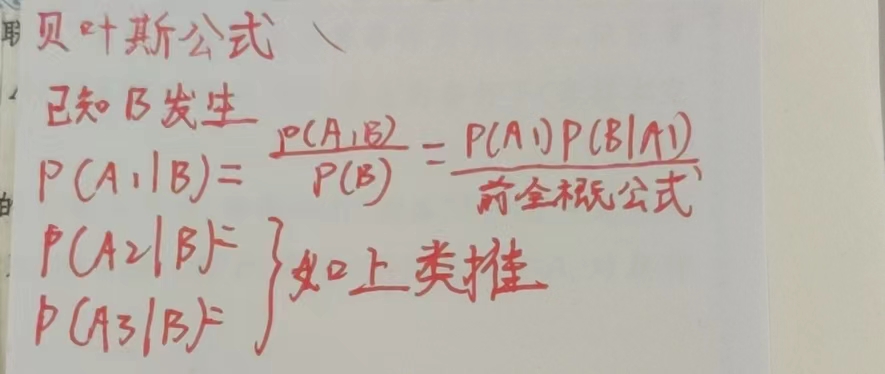 贝叶斯公式
已知B发生
P(A1|B)= P(A1B)/P(B) = P(A1)P(B|A1)/前全概公式
P(A2|B)=
P(A3|B)=
} 如上类推